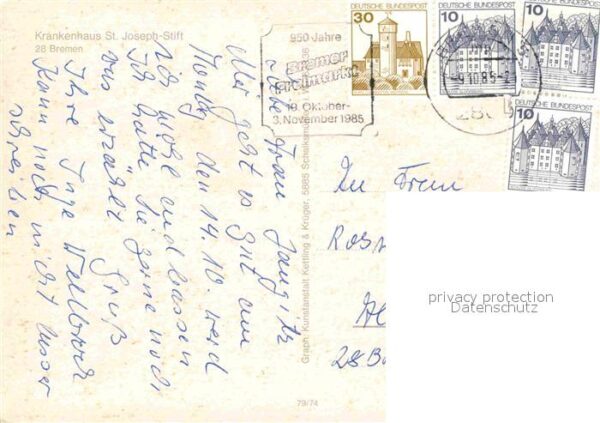 Krankenhaus St. Joseph-Stift
28 Bremen
950 Jahre
Bremer
Freimarkt
19. Oktober-
3. November 1985
DEUTSCHE BUNDESPOST
30
DEUTSCHE BUNDESPOST
10
DEUTSCHE BUNDESPOST
10
DEUTSCHE BUNDESPOST
10
-9.10.85-2
Liebe Frau
Mir geht es gut am
Montag den 14.10. werd
ich wohl endlassen
Ich hätte Sie gerne noch
was erzählt
Gruß
Ihre Inge
Kann noch nicht besser
schreiben
Graph. Kunstanstalt Kettling & Krüger, 5885 Schalksmühle
79/74
An Frau
28 B
privacy protection
Datenschutz